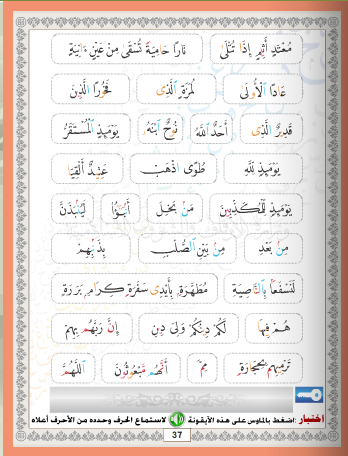 مُعْتَدٍ أَثِيمٍ إِذَا تُتْلَىٰ نَارًا حَامِيَةً تُسْقَىٰ مِنْ عَيْنٍ ءَانِيَةٍ
عَادًا الْأُولَىٰ لُمَزَةٍ الَّذِى فَخُورًا الَّذِينَ
قَدِيرٌ الَّذِى أَحَدٌ اللَّهُ نُوحٌ ابْنَهُ يَوْمَئِذٍ الْمُسْتَقَرُّ
يَوْمَئِذٍ لِلَّهِ طُوًى اذْهَبْ عَنِيدٍ أَلْقِيَا
يَوْمَئِذٍ لِلْمُكَذِّبِينَ مَنْ بَخِلَ أَنْبَؤُا لَيُنْبَذَنَّ
مِنْ بَعْدِ مِنْ بَيْنِ الصُّلْبِ بِذَنْبِهِمْ
لَنَسْفَعًا بِالنَّاصِيَةِ مُطَهَّرَةٍ بِأَيْدِى سَفَرَةٍ كِرَامٍ بَرَرَةٍ
هُمْ فِيهَا لَكُمْ دِينُكُمْ وَلِىَ دِينِ إِنَّ رَبَّهُمْ بِهِمْ
تَرْمِيهِمْ بِحِجَارَةٍ أَنَّهُمْ مَبْعُوثُونَ اللَّهُمَّ
إختبار :اضغط بالماوس على هذه الأيقونة لاستماع الحرف وحدده من الأحرف أعلاه
37